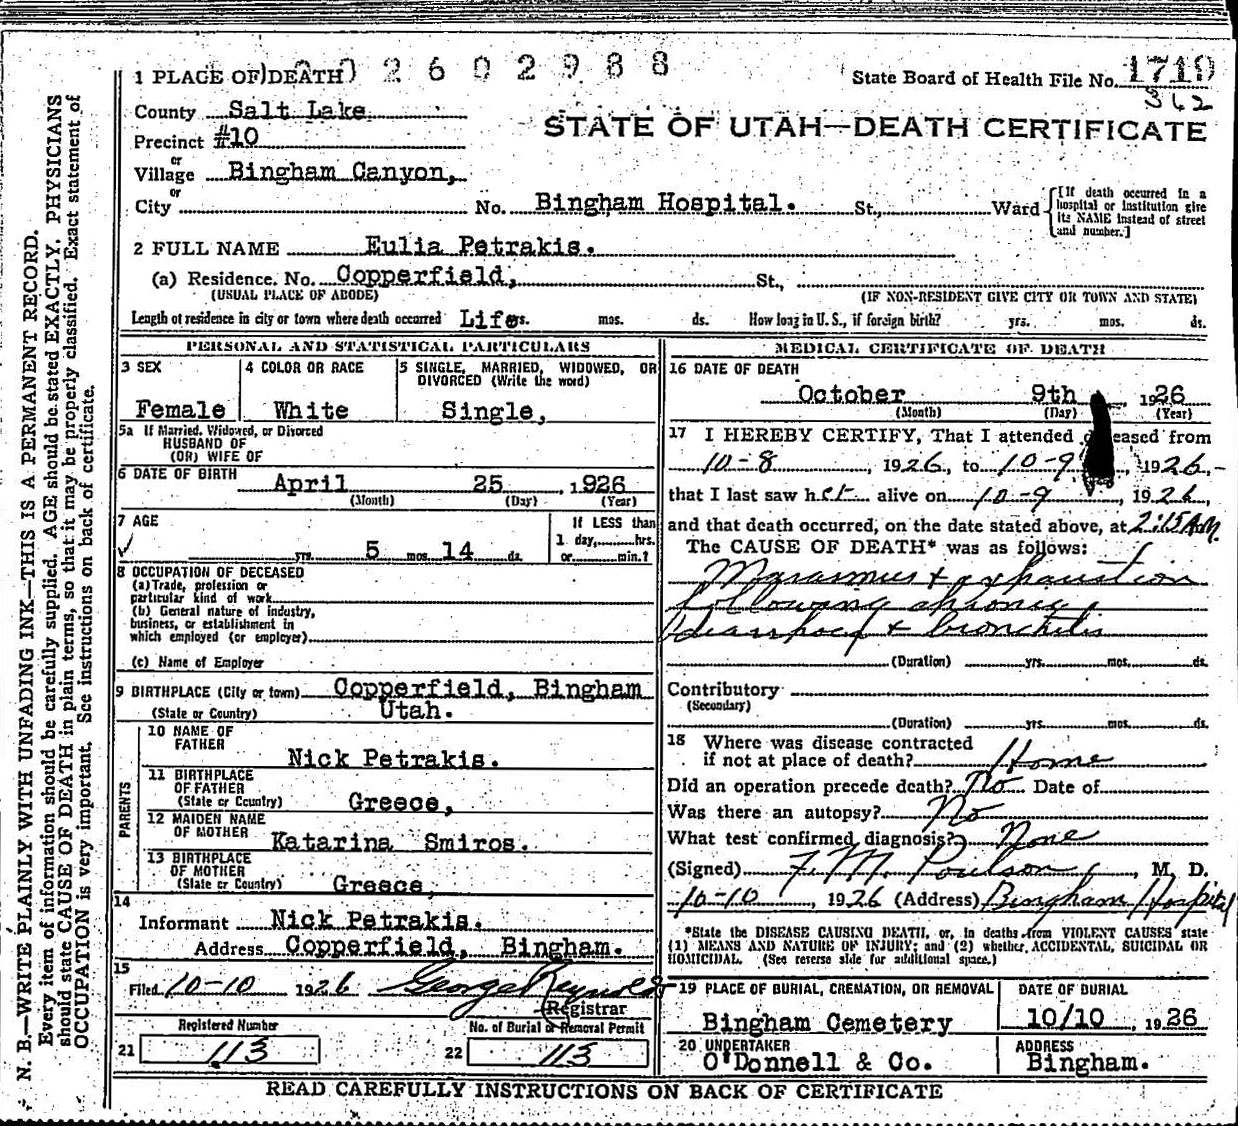 1 PLACE OF DEATH 0 2 6 0 2 9 8 8
State Board of Health File No. 1719
362
County Salt Lake
STATE OF UTAH—DEATH CERTIFICATE
Precinct #10
or
Village Bingham Canyon,
or
City No. Bingham Hospital. St., Ward
[If death occurred in a hospital or institution give its NAME instead of street and number.]
2 FULL NAME Eulia Petrakis.
(a) Residence. No. Copperfield, St.,
(USUAL PLACE OF ABODE) (IF NON-RESIDENT GIVE CITY OR TOWN AND STATE)
Length of residence in city or town where death occurred Life yrs. mos. ds. How long in U. S., if foreign birth? yrs. mos. ds.
PERSONAL AND STATISTICAL PARTICULARS
3 SEX
Female
4 COLOR OR RACE
White
5 SINGLE, MARRIED, WIDOWED, OR DIVORCED (Write the word)
Single,
5a If Married, Widowed, or Divorced
HUSBAND OF
(OR) WIFE OF
6 DATE OF BIRTH April 25 , 1926
(Month) (Day) (Year)
7 AGE
yrs. 5 mos. 14 ds.
If LESS than
1 day, hrs.
or min.?
8 OCCUPATION OF DECEASED
(a) Trade, profession or
particular kind of work
(b) General nature of industry,
business, or establishment in
which employed (or employer)
(c) Name of Employer
9 BIRTHPLACE (City or town) Copperfield, Bingham
(State or Country) Utah.
PARENTS
10 NAME OF
FATHER
Nick Petrakis.
11 BIRTHPLACE
OF FATHER
(State or Country) Greece,
12 MAIDEN NAME
OF MOTHER
Katarina Smiros.
13 BIRTHPLACE
OF MOTHER
(State or Country) Greece,
14
Informant Nick Petrakis.
Address Copperfield, Bingham.
15
Filed 10-10 1926 George Reynolds
Registrar
Registered Number
21 113
No. of Burial or Removal Permit
22 113
MEDICAL CERTIFICATE OF DEATH
16 DATE OF DEATH
October 9th 1926
(Month) (Day) (Year)
17 I HEREBY CERTIFY, That I attended deceased from
10-8 , 1926, to 10-9 , 1926,
that I last saw her alive on 10-9 , 1926,
and that death occurred, on the date stated above, at 2:15 A.M.
The CAUSE OF DEATH* was as follows:
Marasmus + exhaustion
following chronic
diarrhoea + bronchitis
(Duration) yrs. mos. ds.
Contributory
(Secondary)
(Duration) yrs. mos. ds.
18 Where was disease contracted
if not at place of death? Home
Did an operation precede death? No Date of
Was there an autopsy? No
What test confirmed diagnosis? None
(Signed) F. M. Poulson, M. D.
10-10 , 1926 (Address) Bingham Hospital
*State the DISEASE CAUSING DEATH, or, in deaths from VIOLENT CAUSES state
(1) MEANS AND NATURE OF INJURY; and (2) whether ACCIDENTAL, SUICIDAL OR
HOMICIDAL. (See reverse side for additional space.)
19 PLACE OF BURIAL, CREMATION, OR REMOVAL
Bingham Cemetery
DATE OF BURIAL
10/10 , 1926
20 UNDERTAKER
O'Donnell & Co.
ADDRESS
Bingham.
READ CAREFULLY INSTRUCTIONS ON BACK OF CERTIFICATE
N. B.—WRITE PLAINLY WITH UNFADING INK—THIS IS A PERMANENT RECORD.
Every item of information should be carefully supplied. AGE should be stated EXACTLY. PHYSICIANS
should state CAUSE OF DEATH in plain terms, so that it may be properly classified. Exact statement of
OCCUPATION is very important. See instructions on back of certificate.